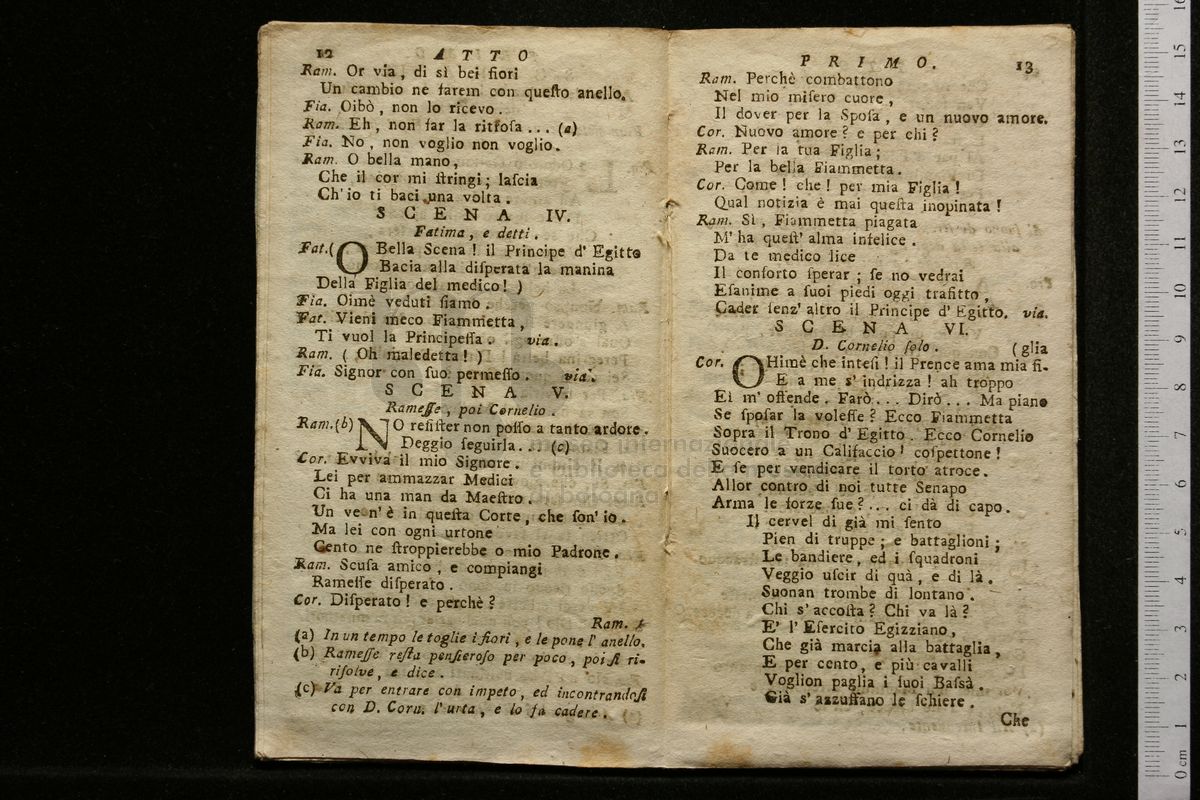 12 ATTO
Ram. Or via, di sì bei fiori
Un cambio ne farem con queſto anello.
Fia. Oibò, non lo ricevo.
Ram. Eh, non far la ritroſa... (a)
Fia. No, non voglio non voglio.
Ram. O bella mano,
Che il cor mi ſtringi; laſcia
Ch' io ti baci una volta.
SCENA IV.
Fatima, e detti.
Fat.( O Bella Scena! il Principe d' Egitto
Bacia alla diſperata la manina
Della Figlia del medico! )
Fia. Oimè veduti ſiamo.
Fat. Vieni meco Fiammetta,
Ti vuol la Principeſſa. via.
Ram. ( Oh maledetta! )
Fia. Signor con ſuo permeſſo. via.
SCENA V.
Rameſſe, poi Cornelio.
Ram.(b) NO reſiſter non poſſo a tanto ardore.
Deggio ſeguirla... (c)
Cor. Evviva il mio Signore.
Lei per ammazzar Medici
Ci ha una man da Maeſtro.
Un ve n' è in queſta Corte, che ſon' io.
Ma lei con ogni urtone
Cento ne ſtroppierebbe o mio Padrone.
Ram. Scuſa amico, e compiangi
Rameſſe diſperato.
Cor. Diſperato! e perchè?
Ram.
(a) In un tempo le toglie i fiori, e le pone l' anello.
(b) Rameſſe reſta penſieroſo per poco, poi ſi ri-
riſolve, e dice.
(c) Va per entrare con impeto, ed incontrandoſi
con D. Corn. l' urta, e lo fa cadere.
PRIMO. 13
Ram. Perchè combattono
Nel mio miſero cuore,
Il dover per la Spoſa, e un nuovo amore.
Cor. Nuovo amore? e per chi?
Ram. Per la tua Figlia;
Per la bella Fiammetta.
Cor. Come! che! per mia Figlia!
Qual notizia è mai queſta inopinata!
Ram. Sì, Fiammetta piagata
M' ha queſt' alma infelice.
Da te medico lice
Il conforto ſperar; ſe no vedrai
Eſanime a ſuoi piedi oggi trafitto,
Cader ſenz' altro il Principe d' Egitto. via.
SCENA VI.
D. Cornelio ſolo. (glia
Cor. OHimè che inteſi! il Prence ama mia fi-
E a me s' indrizza! ah troppo
Ei m' offende. Farò... Dirò... Ma piano
Se ſpoſar la voleſſe? Ecco Fiammetta
Sopra il Trono d' Egitto. Ecco Cornelio
Suocero a un Califaccio! coſpettone!
E ſe per vendicare il torto atroce.
Allor contro di noi tutte Senapo
Arma le forze ſue?... ci dà di capo.
Il cervel di già mi ſento
Pien di truppe; e battaglioni;
Le bandiere, ed i ſquadroni
Veggio uſcir di quà, e di là.
Suonan trombe di lontano.
Chi s' accoſta? Chi va là?
E' l' Eſercito Egizziano,
Che già marcia alla battaglia,
E per cento, e più cavalli
Voglion paglia i ſuoi Baſsà.
Già s' azzuffano le ſchiere.
Che
museo internazionale
e biblioteca della musica
di bologna